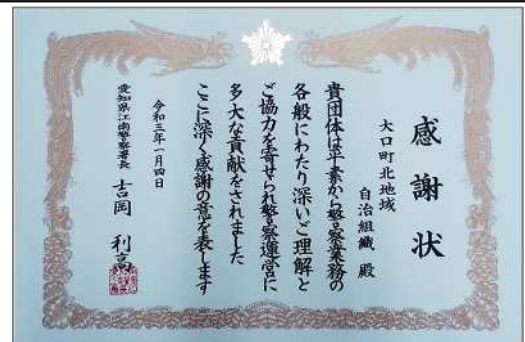 感謝状
大口町北地域
自治組織 殿
貴団体は平素から警察業務の
各般にわたり深いご理解と
ご協力を寄せられ警察運営に
多大な貢献をされました
ここに深く感謝の意を表します
令和三年一月四日
愛知県江南警察署長 吉岡 利高